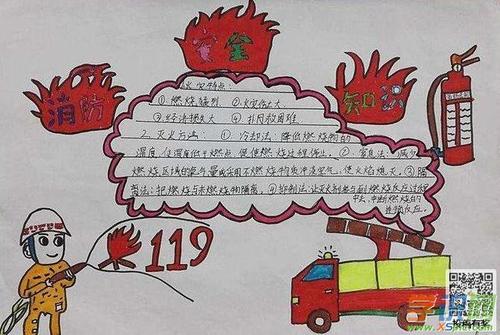 安全
消防
知识
火灾特点：
①、燃烧猛烈 ②、火灾伤亡大
③、经济损失大 ④、扑救困难
2、灭火方法：①、冷却法：降低燃烧物的
温度，使温度低于燃点，促使燃烧过程停止。②、窒息法：减少
燃烧区域的氧气量或采用不燃烧物质冲淡空气，使火焰熄灭。③隔
离法：把燃烧与未燃烧物隔离。④抑制法：让灭火剂参与到燃烧反应过程
中去，中断燃烧的
连锁反应。
119